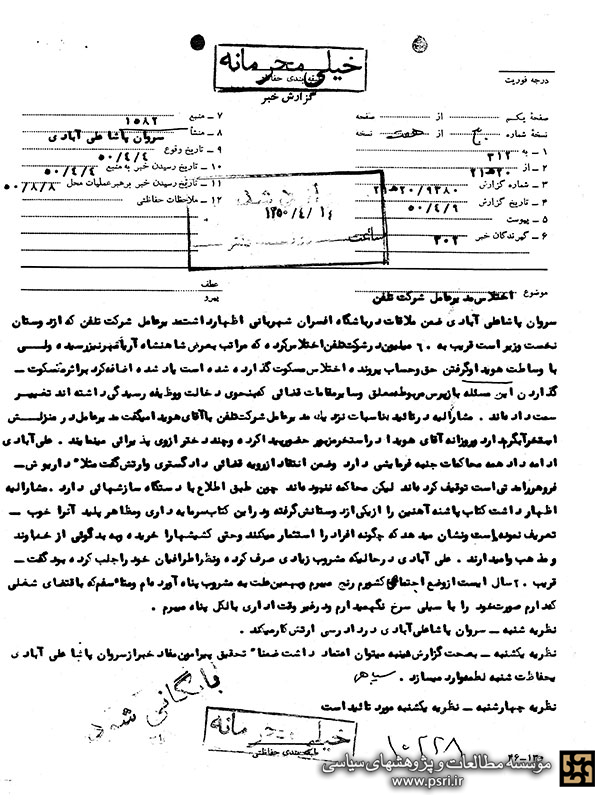 خیلی محرمانه
طبقه بندی حفاظتی
گزارش خبر
درجه فوریت
صفحه یکم از صفحه
نسخه شماره از نسخه
۱ ـ به ۳۱۲
۲ ـ از ۲۰ﻫ۲۱
۳ ـ شماره گزارش ۲۰/۹۳۸۰ﻫ۲۱
۴ ـ تاریخ گزارش ۵۰/۴/۹
۵ ـ پیوست
۶ ـ گیرندگان خبر ۳۰۲
۷ ـ منبع ۱۵۸۲
۸ ـ منشأ سروان پاشا علی آبادی
۹ ـ تاریخ وقوع ۵۰/۴/۴
۱۰ ـ تاریخ رسیدن خبر به منبع ۵۰/۴/۴
۱۱ ـ تاریخ رسیدن خبر به رهبر عملیات محل ۵۰/۸/۸
۱۲ ـ ملاحظات حفاظتی
۱۳۵۰/۴/۱۴
ساعت
موضوع اختلاس مدیرعامل شرکت تلفن
عطف
پیرو
سروان پاشاعلی آبادی ضمن ملاقات در باشگاه افسران شهربانی اظهار داشت مدیرعامل شرکت تلفن که از دوستان
نخست وزیر است قریب به ۶۰ میلیون در شرکت تلفن اختلاس کرده که مراتب بعرض شاهنشاه آریامهر نیز رسیده ولی
با وساطت هویدا و گرفتن حق و حساب پرونده اختلاس مسکوت گذارده شده است یاد شده اضافه کرد براثر مسکوت ـ
گذاردن این مسئله بازپرس مربوطه معلق و سایر مقامات قضائی که بنحوی دخالت و وظیفه رسیدگی داشته اند تغییر
سمت داده اند . مشارالیه در تائید مناسبات نزدیک مدیرعامل شرکت تلفن با آقای هویدا میگفت مدیرعامل در منزلش
استخر آبگرم دارد و روزانه آقای هویدا در استخر مزبور حضور پیدا کرده و چند دختر از وی پذیرائی مینمایند . علی آبادی
ادامه داد همه محاکمات جنبه فرمایشی دارد وضمن انتقاد از رویه قضائی دادگستری وارتش گفت مثلا" داریوش ـ
فروهر زا مدتی است توقیف کرده اند لیکن محاکمه ننموده اند چون طبق اطلاع با دستگاه سازشهائی دارد . مشارالیه
اظهار داشت کتاب پاشنه آهنین را از یکی از دوستانش گرفته ودر این کتاب سرمایه داری ومظاهر پلید آنرا خوب ـ
تعریف نموده است ونشان میدهد که چگونه افراد را استثمار میکنند وحتی کشیشها را خریده وبه بدگوئی از خداوند
و مذهب وامیدارند . علی آبادی در حالیکه مشروب زیادی صرف کرده ونظر اطرافیان خود را جلب کرده بود گفت ـ
قریب ۲۰ سال است از وضع اجتماعی کشورم رنج میبرم وبهمین علت به مشروب پناه آورده ام ومتأسفم که باقتضای شغلی
که دارم صورت خود را با سیلی سرخ نگهمیدارم ودر غیر وقت اداری بالکل پناه میبرم .
نظریه شنبه ـ سروان پاشاعلی آبادی در دادرسی ارتش کار میکند .
نظریه یکشنبه ـ بصحت گزارش شنبه میتوان اعتماد داشت ضمنا" تحقیق پیرامون مفاد خبر از سروان پاشا علی آبادی
بحفاظت شنبه لطمه وارد میسازد .
نظریه چهارشنبه ـ نظریه یکشنبه مورد تائید است
بایگانی شود
خیلی محرمانه
طبقه بندی حفاظتی
۱۰۲۲۸
۴۶-۱۳۰
موسسه مطالعات و پژوهشهای سیاسی
www.psri.ir